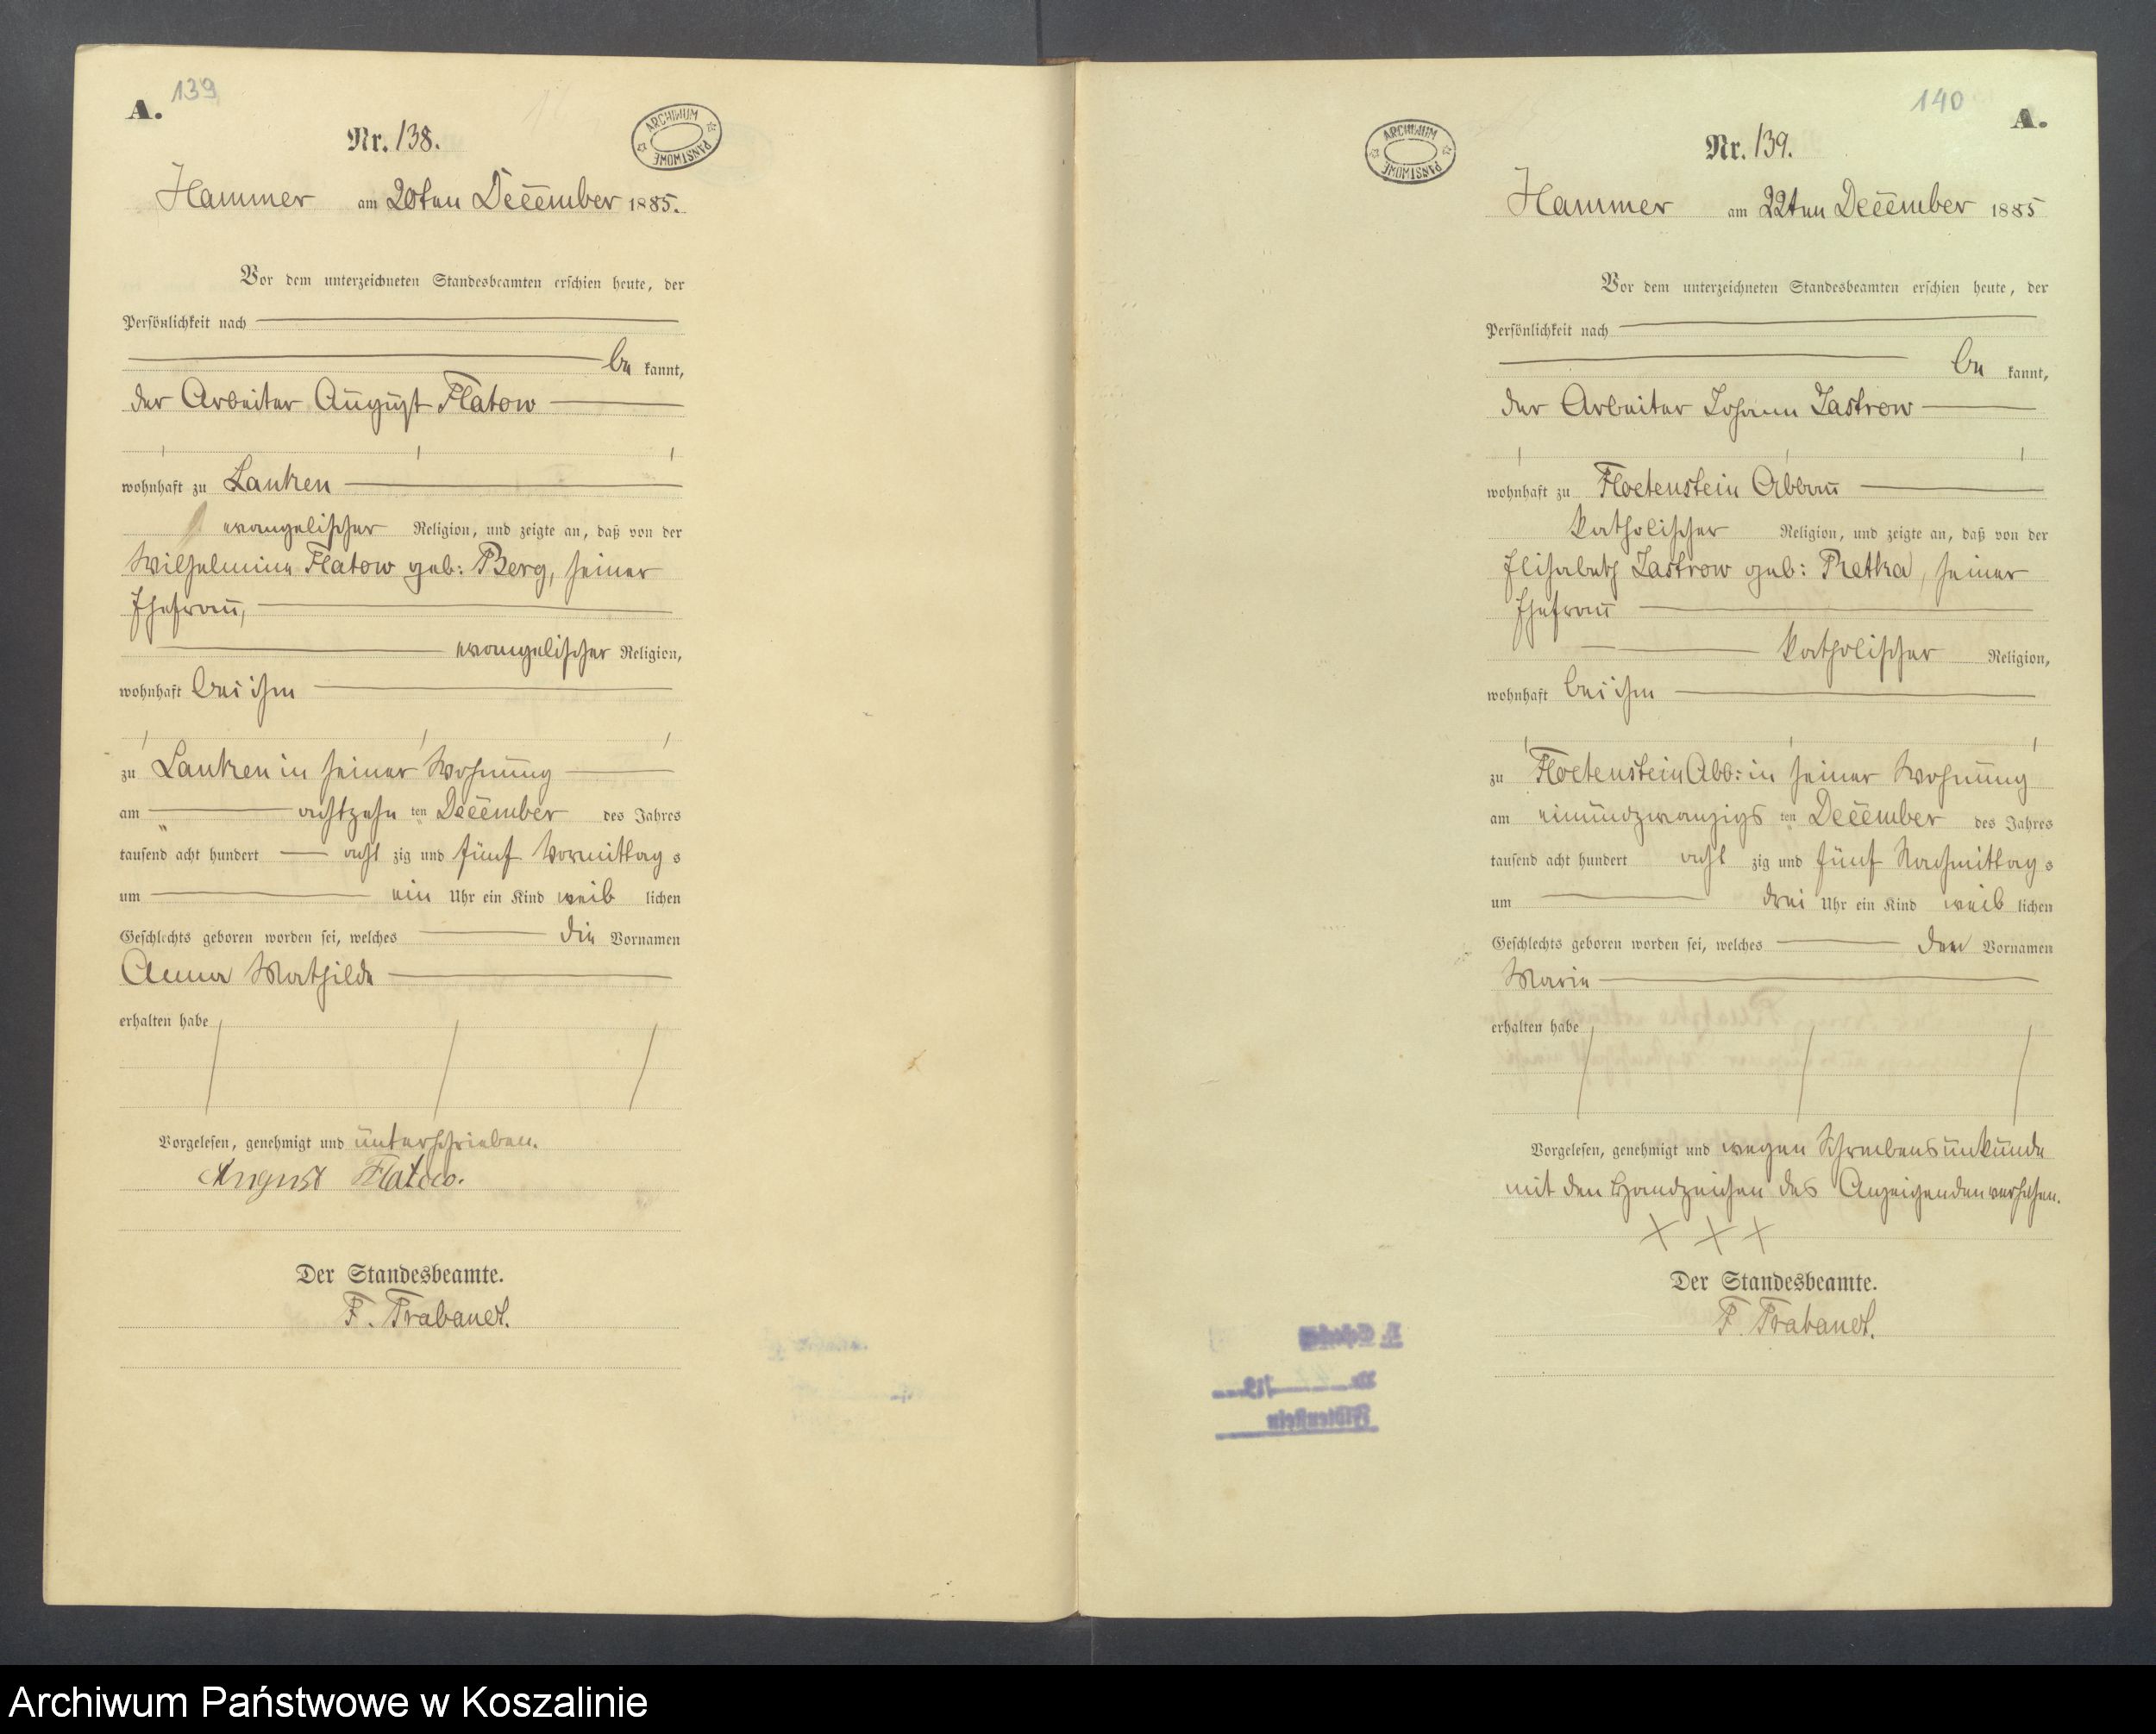 A. 139
Nr. 138.
ARCHIWUM PAŃSTWOWE
Hammer am 20ten December 1885.
Vor dem unterzeichneten Standesbeamten erschien heute, der
Persönlichkeit nach
be kannt,
der Arbeiter August Flatow
wohnhaft zu Lanken
evangelischer Religion, und zeigte an, daß von der
Wilhelmine Flatow geb: Berg, seiner
Ehefrau,
evangelischer Religion,
wohnhaft bei ihm
zu Lanken in seiner Wohnung
am achtzehn ten December des Jahres
tausend acht hundert acht zig und fünf Vormittag s
um ein Uhr ein Kind weib lichen
Geschlechts geboren worden sei, welches die Vornamen
Anna Mathilde
erhalten habe
Vorgelesen, genehmigt und unterschrieben.
August Flatow.
Der Standesbeamte.
F. Trabandt.
140 A.
Nr. 139.
ARCHIWUM PAŃSTWOWE
Hammer am 22ten December 1885
Vor dem unterzeichneten Standesbeamten erschien heute, der
Persönlichkeit nach
be kannt,
der Arbeiter Johann Jastrow
wohnhaft zu Floetenstein Abbau
katholischer Religion, und zeigte an, daß von der
Elisabeth Jastrow geb: Pretka, seiner
Ehefrau
katholischer Religion,
wohnhaft bei ihm
zu Floetenstein Abb: in seiner Wohnung
am einundzwanzigs ten December des Jahres
tausend acht hundert acht zig und fünf Nachmittag s
um drei Uhr ein Kind weib lichen
Geschlechts geboren worden sei, welches den Vornamen
Marie
erhalten habe
Vorgelesen, genehmigt und wegen Schreibensunkunde
mit den Handzeichen des Anzeigenden versehen.
X X X
Der Standesbeamte.
F. Trabandt.
Archiwum Państwowe w Koszalinie